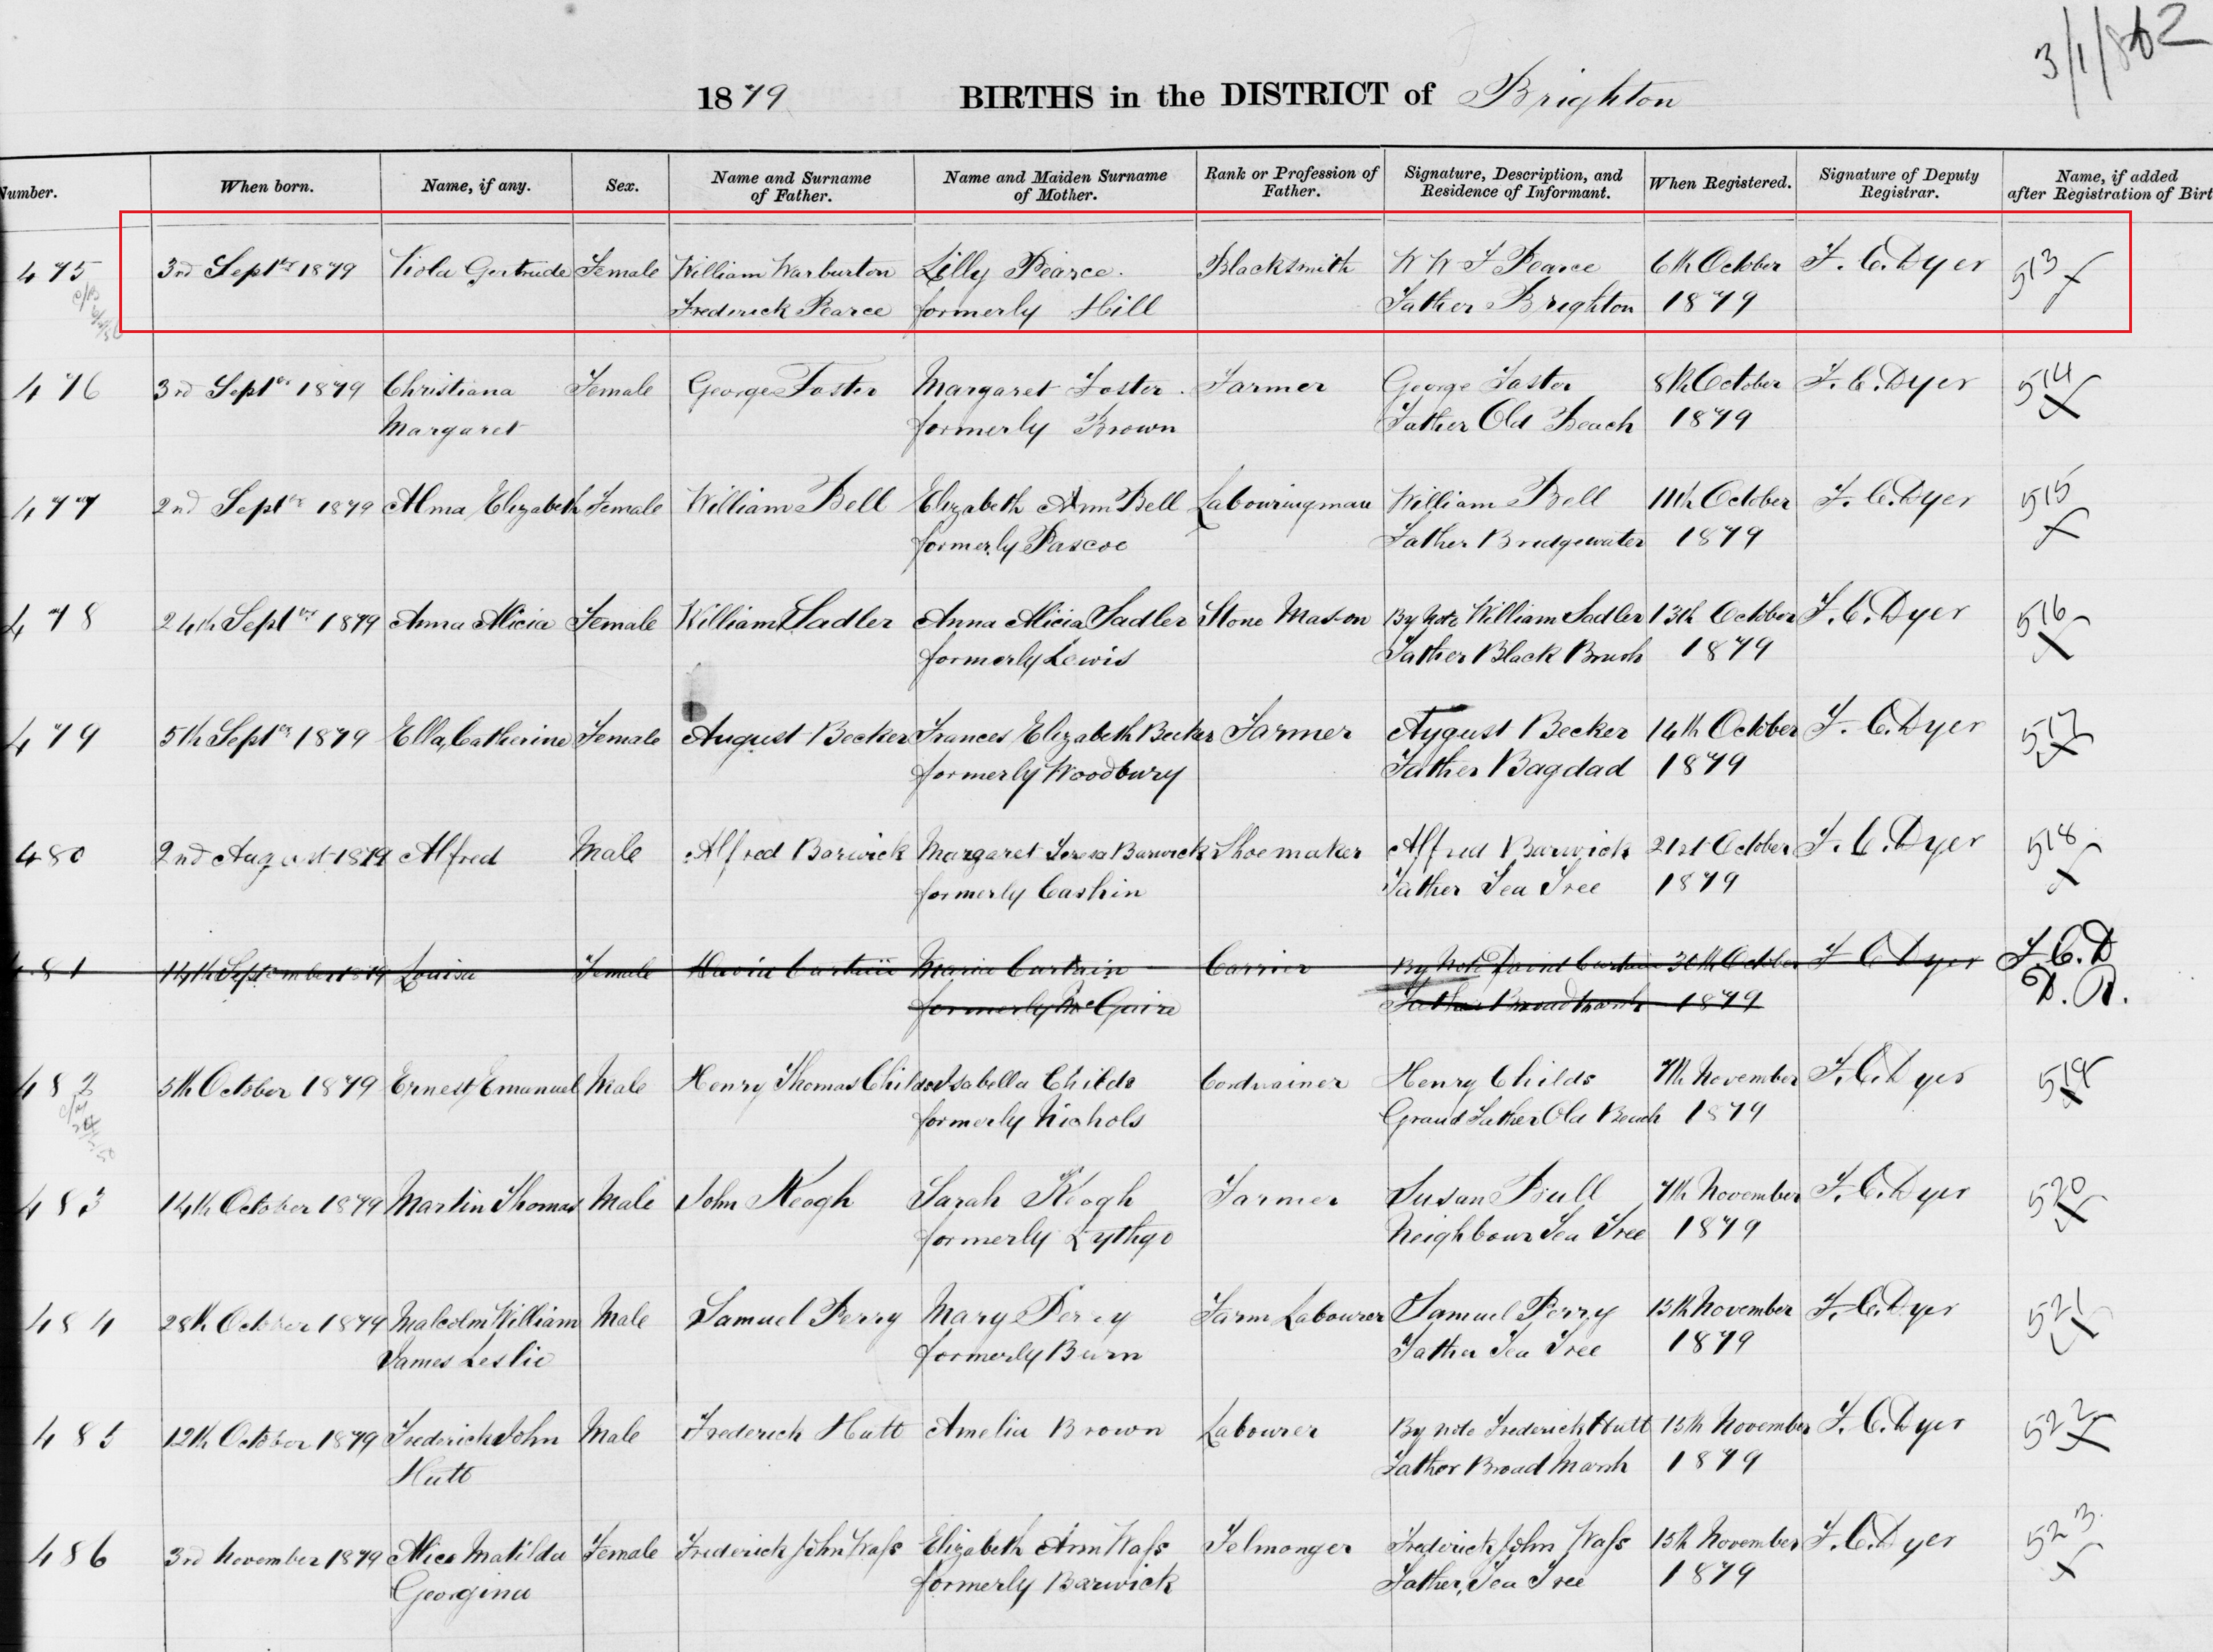 3/1/862
1879 BIRTHS in the DISTRICT of Brighton
Number. When born. Name, if any. Sex. Name and Surname of Father. Name and Maiden Surname of Mother. Rank or Profession of Father. Signature, Description, and Residence of Informant. When Registered. Signature of Deputy Registrar. Name, if added after Registration of Birt
475 3rd Septbr 1879 Viola Gertrude Female William Warburton Lilly Pearce. Blacksmith W W F Pearce 6th October F. C. Dyer 513
Frederick Pearce formerly Hill Father Brighton 1879
476 3rd Septbr 1879 Christiana Female George Foster Margaret Foster. Farmer George Foster 8th October F. C. Dyer 514
Margaret formerly Brown Father Old Beach 1879
477 2nd Septbr 1879 Alma Elizabeth Female William Bell Elizabeth Ann Bell Labouringman William Bell 11th October F. C. Dyer 515
formerly Pascoe Father Bridgewater 1879
478 24th Septbr 1879 Anna Alicia Female William Sadler Anna Alicia Sadler Stone Mason By Note William Sadler 13th October F. C. Dyer 516
formerly Lewis Father Black Brush 1879
479 5th Septbr 1879 Ella Catherine Female August Becker Frances Elizabeth Becker Farmer August Becker 14th October F. C. Dyer 517
formerly Woodbury Father Bagdad 1879
480 2nd August 1879 Alfred Male Alfred Barwick Margaret Teresa Barwick Shoemaker Alfred Barwick 21st October F. C. Dyer 518
formerly Cashin Father Tea Tree 1879
481 14th September 1879 Louisa Female David Curtain Maria Curtain Carrier By Note David Curtain 30th October F C Dyer F. C. D
formerly McGuire Father Broadmarsh 1879 D. R.
482 5th October 1879 Ernest Emanuel Male Henry Thomas Childs Isabella Childs Cordwainer Henry Childs 7th November F. C. Dyer 519
formerly Nichols Grand Father Old Beach 1879
483 14th October 1879 Martin Thomas Male John Keogh Sarah Keogh Farmer Susan Bull 7th November F. C. Dyer 520
formerly Lythgo Neighbour Tea Tree 1879
484 28th October 1879 Malcolm William Male Samuel Perry Mary Perry Farm Labourer Samuel Perry 15th November F. C. Dyer 521
James Leslie formerly Burn Father Tea Tree 1879
485 12th October 1879 Frederick John Male Frederick Hutt Amelia Brown Labourer By note Frederick Hutt 15th November F. C. Dyer 522
Hutt Father Broad Marsh 1879
486 3rd November 1879 Alice Matilda Female Frederick John Wafs Elizabeth Ann Wafs Felmonger Frederick John Wafs 15th November F. C. Dyer 523
Georgina formerly Barwick Father, Tea Tree 1879